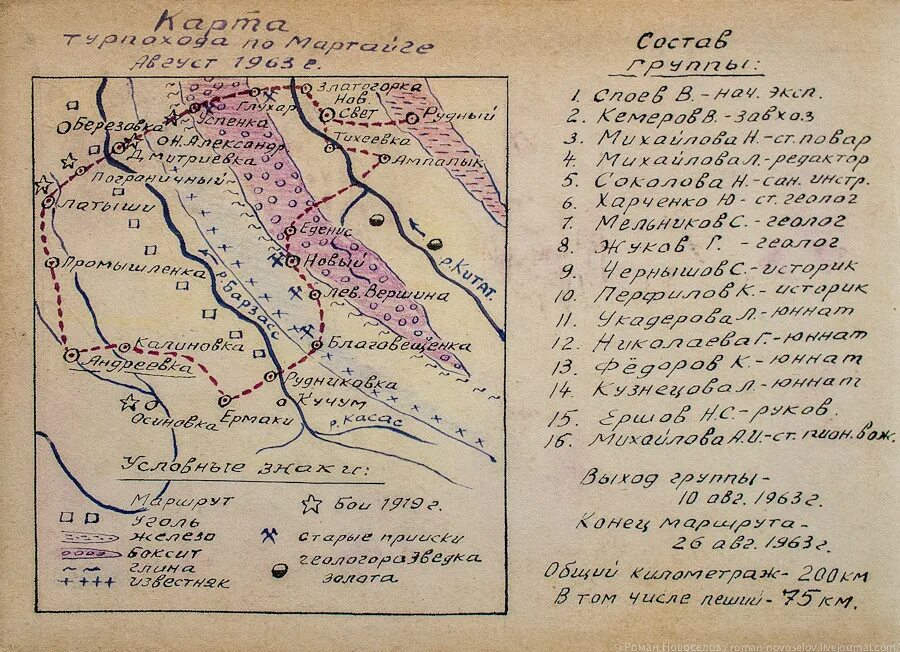 Карта
турпохода по Мартайге
Август 1963 г.
Златогорка
Глухар
Нов.
Свет
Рудный
Успенка
Березовка
Тихеевка
ОН. Александр
Дмитриевка
Ампалык
Пограничный
Латыши
Еденис
р. Китат.
Промышленка
Новый
р. Барзасс
Лев. Вершина
Калиновка
Благовещенка
Андреевка
Рудниковка
Кучум
Осиновка
Ермаки
р. Касас
Условные знаки:
Маршрут
Бои 1919 г.
Уголь
железо
старые прииски
Боксит
геологоразведка
золота
глина
известняк
Состав
группы:
1. Споев В. - нач. эксп.
2. Кемеров В. - завхоз
3. Михайлова Н. - ст. повар
4. Михайлова Л. - редактор
5. Соколова Н. - сан. инстр.
6. Харченко Ю - ст. геолог
7. Мельников С. - геолог
8. Жуков Г. - геолог
9. Чернышов С. - историк
10. Перфилов К. - историк
11. Укадерова Л. - юннат
12. Николаева Г. - юннат
13. Фёдоров К. - юннат
14. Кузнецова Л - юннат
15. Ершов Н.С - руков.
16. Михайлова А.И - ст. пион. вож.
Выход группы -
10 авг. 1963 г.
Конец маршрута -
26 авг. 1963 г.
Общий километраж - 200 км
В том числе пеший - 75 км.
© Роман Новоселов / roman-novoselov.livejournal.com